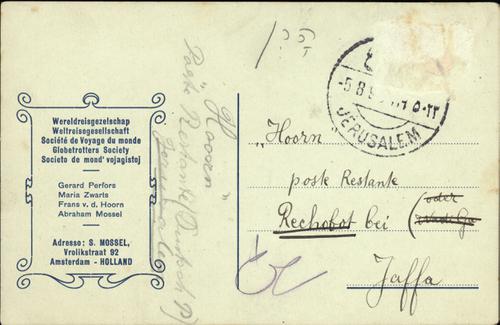 Wereldreisgezelschap
Weltreisegesellschaft
Société de Voyage du monde
Globetrotters Society
Societo de mond' vojagistoj
Gerard Perfors
Maria Zwarts
Frans v. d. Hoorn
Abraham Mossel
Adresse: S. MOSSEL,
Vrolikstraat 92
Amsterdam - HOLLAND
"Hoorn"
Poste Restante (Deutsch P)
JERUSALEM
"Hoorn"
poste Restante
Rechobot bei (oder
Jaffa